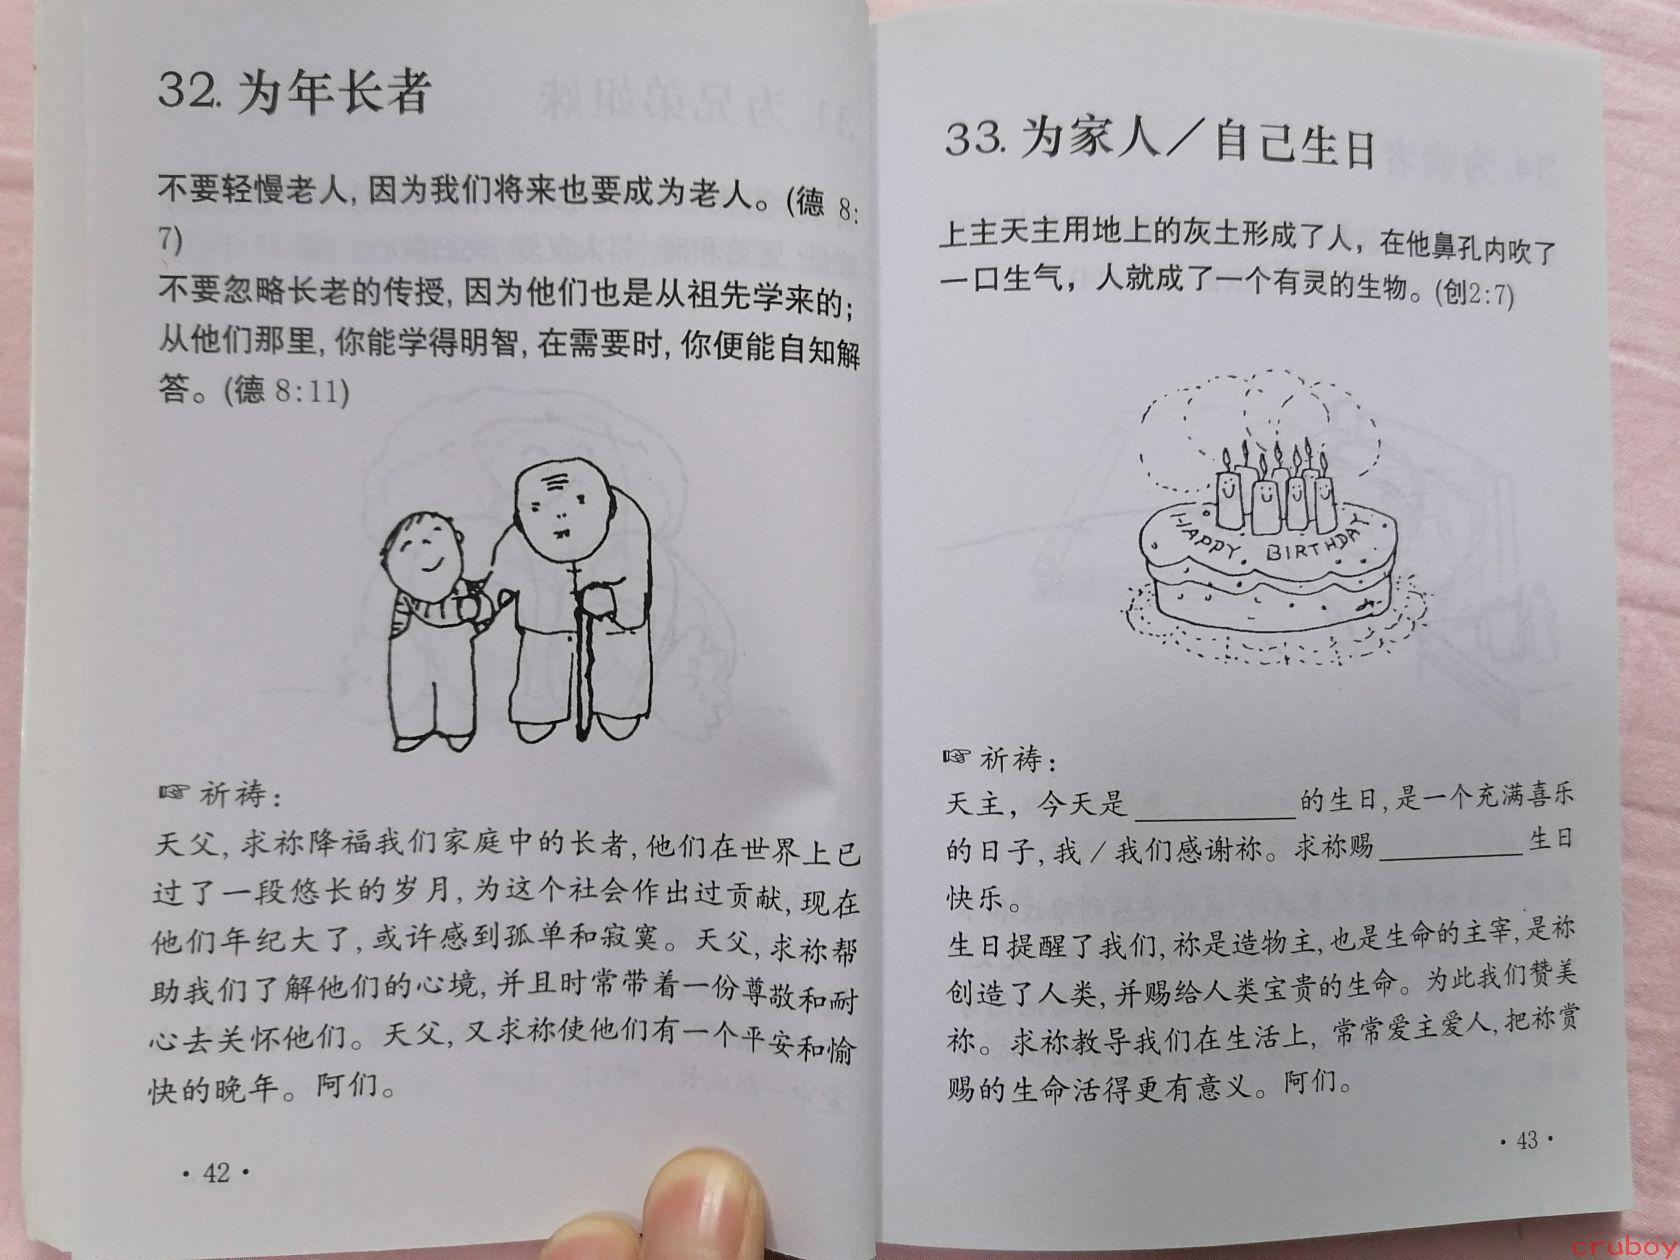 32. 为年长者
不要轻慢老人, 因为我们将来也要成为老人。(德 8:
7)
不要忽略长老的传授, 因为他们也是从祖先学来的;
从他们那里, 你能学得明智, 在需要时, 你便能自知解
答。(德 8:11)
☞ 祈祷:
天父, 求祢降福我们家庭中的长者, 他们在世界上已
过了一段悠长的岁月, 为这个社会作出过贡献, 现在
他们年纪大了, 或许感到孤单和寂寞。天父, 求祢帮
助我们了解他们的心境, 并且时常带着一份尊敬和耐
心去关怀他们。天父, 又求祢使他们有一个平安和愉
快的晚年。阿们。
· 42 ·
33. 为家人／自己生日
上主天主用地上的灰土形成了人，在他鼻孔内吹了
一口生气，人就成了一个有灵的生物。(创2:7)
HAPPY BIRTHDAY
☞ 祈祷:
天主，今天是__________的生日, 是一个充满喜乐
的日子, 我／我们感谢祢。求祢赐__________生日
快乐。
生日提醒了我们, 祢是造物主, 也是生命的主宰, 是祢
创造了人类, 并赐给人类宝贵的生命。为此我们赞美
祢。求祢教导我们在生活上, 常常爱主爱人, 把祢赏
赐的生命活得更有意义。阿们。
· 43 ·
cruboy